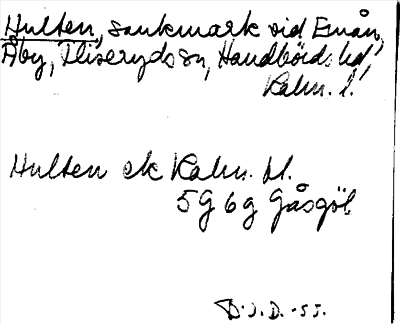 Hulten, sankmark vid Emån,
Åby, Fliseryds sn, Handbörds hd,
Kalm. l.
Hulten ek Kalm. bl.
5G 6g Gåsgöl
D.J.D. -55.